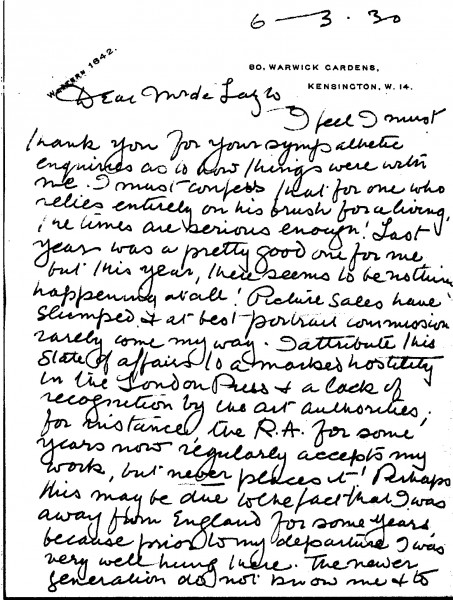 6-3.30
WESTERN 1642.
80, WARWICK GARDENS,
KENSINGTON, W. 14.
Dear Mr de Laszlo
I feel I must
thank you for your sympathetic
enquiries as to how things were with
me. I must confess that for one who
relies entirely on his brush for a living,
the times are serious enough! Last
year was a pretty good one for me
but this year, there seems to be nothing
happening at all! Picture sales have
slumped & at best portrait commission
rarely come my way. I attribute this
state of affairs to a marked hostility
in the London Press & a lack of
recognition by the art authorities;
for instance, the R.A. for some
years now regularly accepts my
work, but never places it! Perhaps
this may be due to the fact that I was
away from England for some years
because prior to my departure I was
very well hung there. The newer
generation do not know me & to